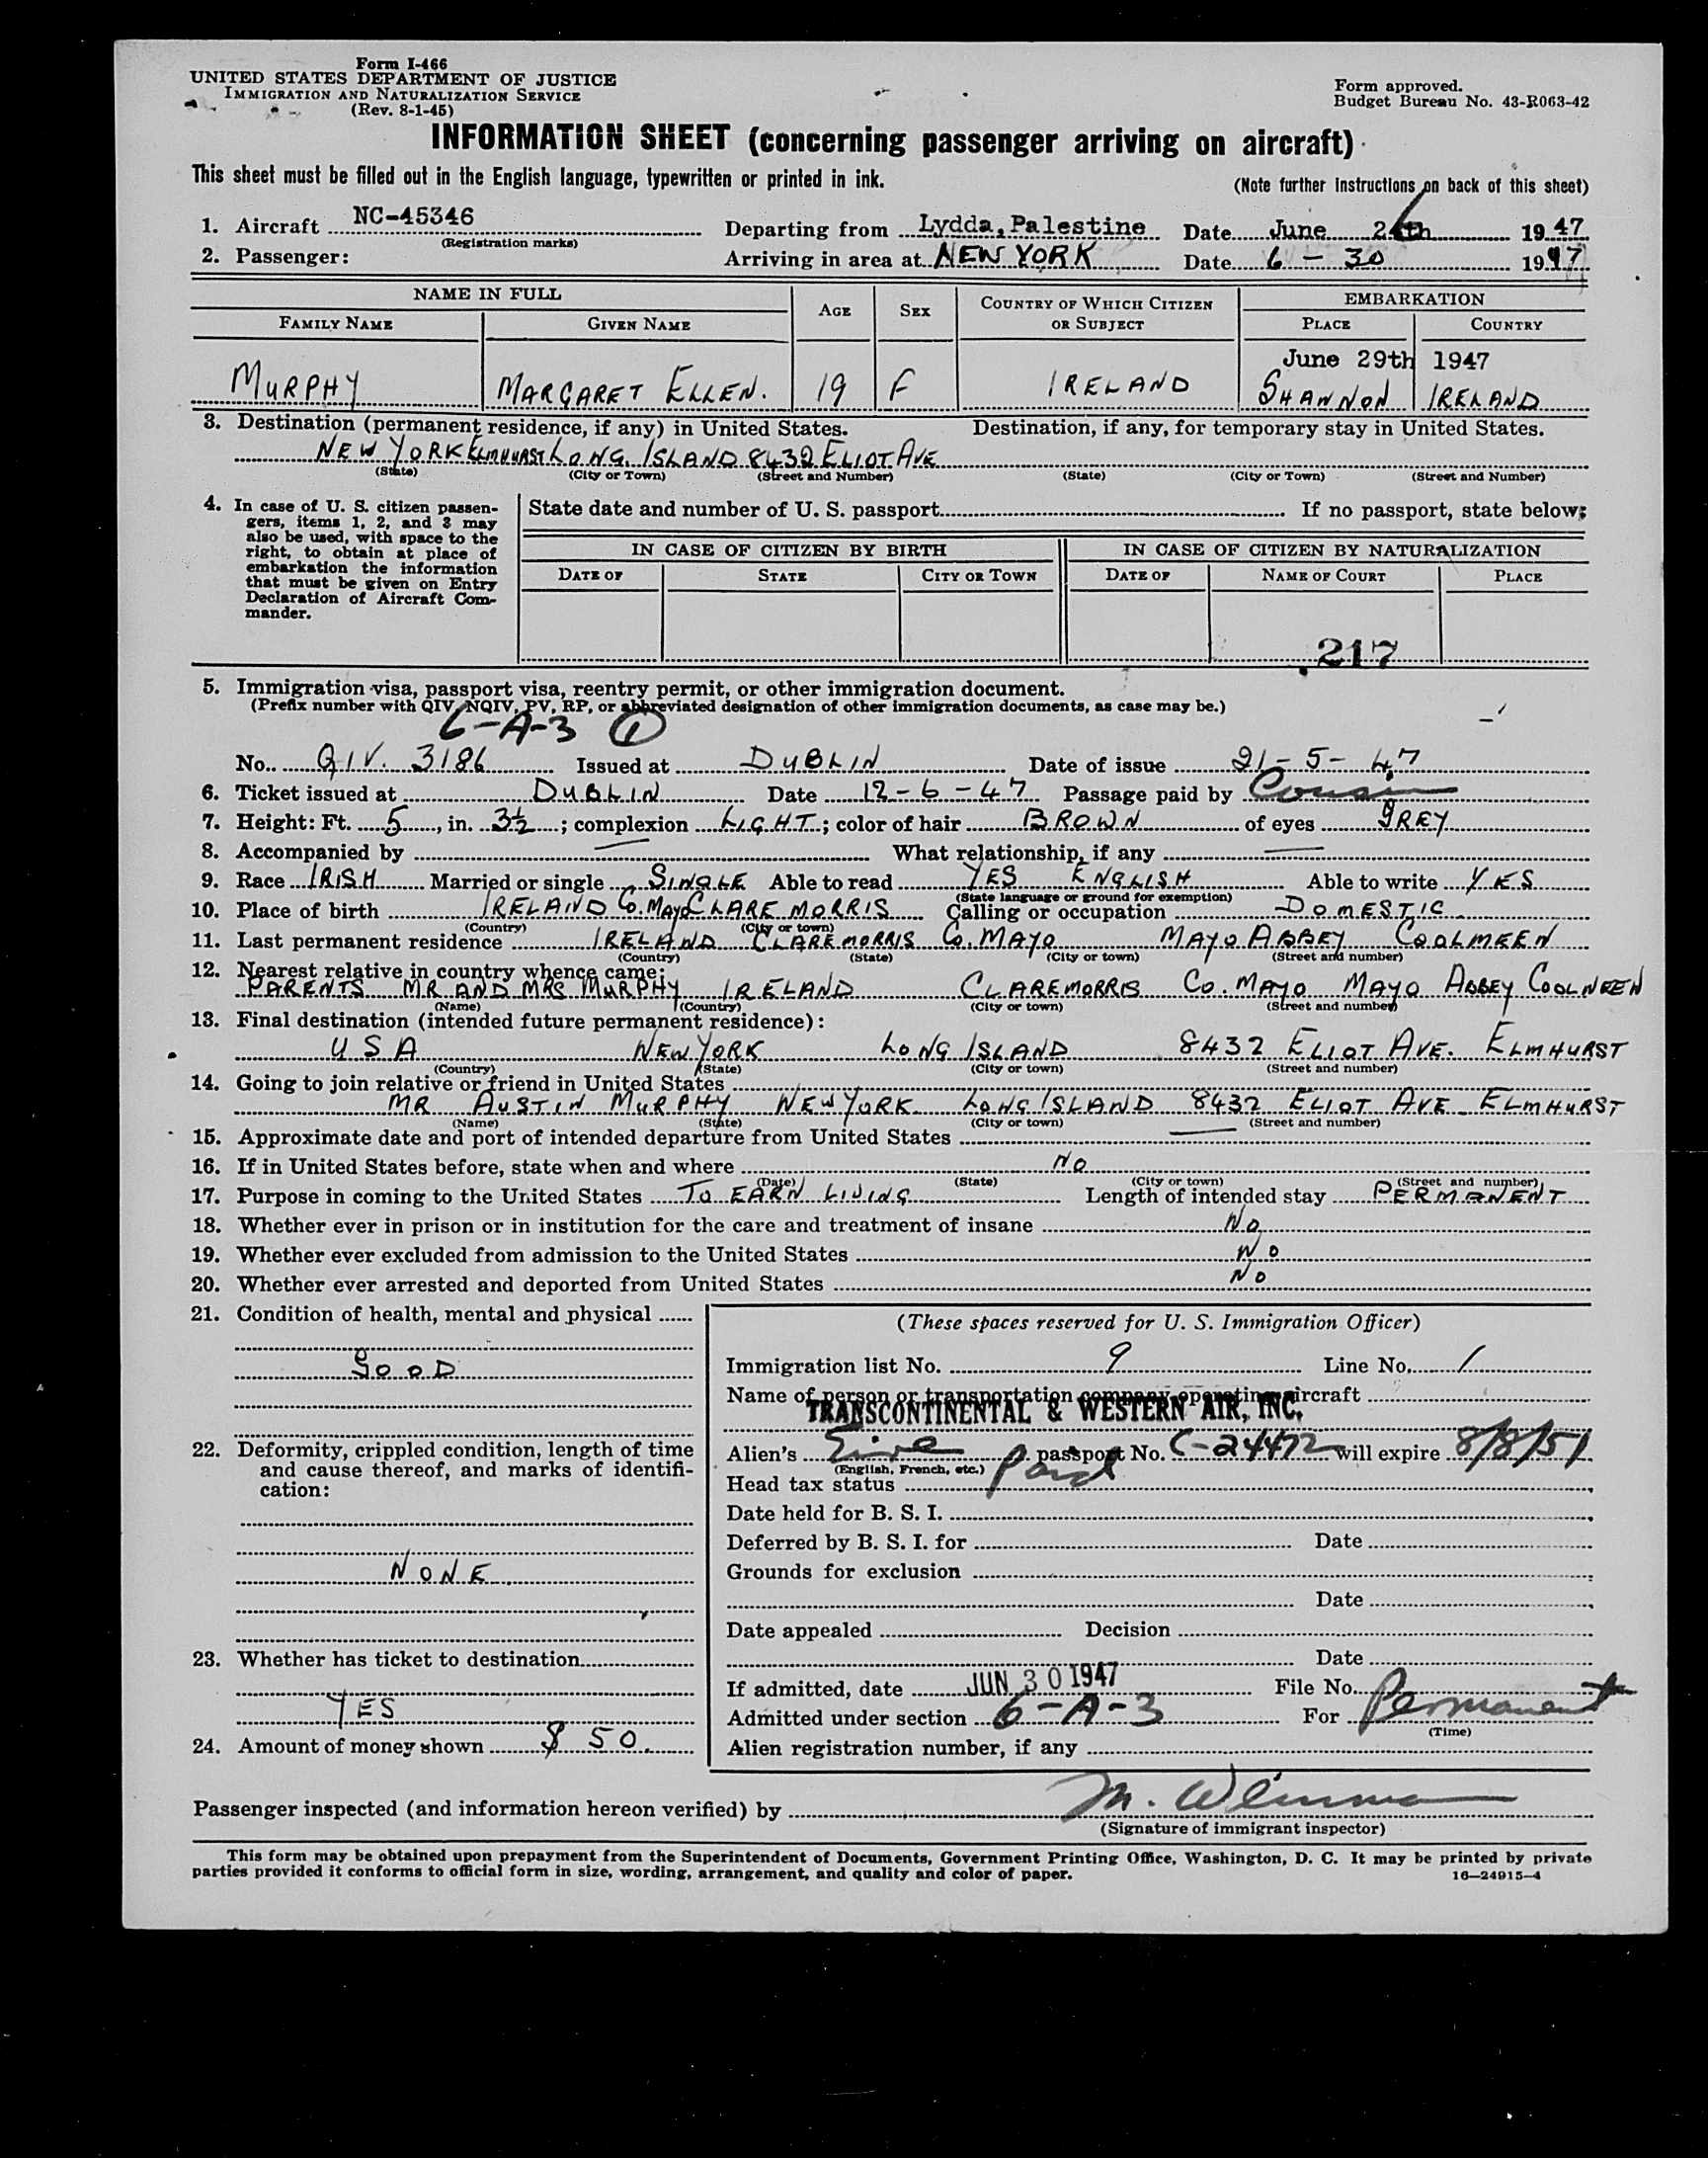 Form I-466
UNITED STATES DEPARTMENT OF JUSTICE
IMMIGRATION AND NATURALIZATION SERVICE
(Rev. 8-1-45)
Form approved.
Budget Bureau No. 43-R063-42
INFORMATION SHEET (concerning passenger arriving on aircraft)
This sheet must be filled out in the English language, typewritten or printed in ink.
(Note further instructions on back of this sheet)
1. Aircraft NC-45346 Departing from Lydda, Palestine Date June 26th 1947
(Registration marks)
2. Passenger: Arriving in area at NEW YORK Date 6 - 30 1947
NAME IN FULL AGE SEX COUNTRY OF WHICH CITIZEN OR SUBJECT EMBARKATION
FAMILY NAME GIVEN NAME PLACE COUNTRY
June 29th 1947
MURPHY MARGARET ELLEN. 19 F IRELAND SHANNON IRELAND
3. Destination (permanent residence, if any) in United States. Destination, if any, for temporary stay in United States.
NEW YORK ELMHURST LONG ISLAND 8432 ELIOT AVE
(State) (City or Town) (Street and Number) (State) (City or Town) (Street and Number)
4. In case of U. S. citizen passen-
gers, items 1, 2, and 3 may
also be used, with space to the
right, to obtain at place of
embarkation the information
that must be given on Entry
Declaration of Aircraft Com-
mander.
State date and number of U. S. passport If no passport, state below:
IN CASE OF CITIZEN BY BIRTH IN CASE OF CITIZEN BY NATURALIZATION
DATE OF STATE CITY OR TOWN DATE OF NAME OF COURT PLACE
217
5. Immigration visa, passport visa, reentry permit, or other immigration document.
(Prefix number with QIV, NQIV, PV, RP, or abbreviated designation of other immigration documents, as case may be.)
6-A-3 1
No. QIV. 3186 Issued at DUBLIN Date of issue 21-5-47
6. Ticket issued at DUBLIN Date 12-6-47 Passage paid by Cousin
7. Height: Ft. 5, in. 3½; complexion LIGHT; color of hair BROWN of eyes GREY
8. Accompanied by — What relationship, if any —
9. Race IRISH Married or single SINGLE Able to read YES ENGLISH Able to write YES
(State language or ground for exemption)
10. Place of birth IRELAND Co. MAYO CLAREMORRIS Calling or occupation DOMESTIC
(Country) (City or town)
11. Last permanent residence IRELAND CLAREMORRIS Co. MAYO MAYO ABBEY COOLMEEN
(Country) (State) (City or town) (Street and number)
12. Nearest relative in country whence came:
PARENTS MR AND MRS MURPHY IRELAND CLAREMORRIS Co. MAYO MAYO ABBEY COOLNEEN
(Name) (Country) (City or town) (Street and number)
13. Final destination (intended future permanent residence):
USA NEW YORK LONG ISLAND 8432 ELIOT AVE. ELMHURST
(Country) (State) (City or town) (Street and number)
14. Going to join relative or friend in United States
MR AUSTIN MURPHY NEW YORK LONG ISLAND 8432 ELIOT AVE ELMHURST
(Name) (State) (City or town) (Street and number)
15. Approximate date and port of intended departure from United States —
16. If in United States before, state when and where NO
(Date) (State) (City or town) (Street and number)
17. Purpose in coming to the United States TO EARN LIVING Length of intended stay PERMANENT
18. Whether ever in prison or in institution for the care and treatment of insane NO
19. Whether ever excluded from admission to the United States NO
20. Whether ever arrested and deported from United States NO
21. Condition of health, mental and physical
GOOD
22. Deformity, crippled condition, length of time
and cause thereof, and marks of identifi-
cation:
NONE
23. Whether has ticket to destination
YES
24. Amount of money shown $ 50.
(These spaces reserved for U. S. Immigration Officer)
Immigration list No. 9 Line No. 1
Name of person or transportation company operating aircraft
TRANSCONTINENTAL & WESTERN AIR, INC.
Alien's Eire passport No. C-24472 will expire 8/8/51
(English, French, etc.)
Head tax status Paid
Date held for B. S. I.
Deferred by B. S. I. for Date
Grounds for exclusion
Date
Date appealed Decision
Date
If admitted, date JUN 30 1947 File No.
Admitted under section 6-A-3 For Permanent
(Time)
Alien registration number, if any
Passenger inspected (and information hereon verified) by M.
(Signature of immigrant inspector)
This form may be obtained upon prepayment from the Superintendent of Documents, Government Printing Office, Washington, D. C. It may be printed by private
parties provided it conforms to official form in size, wording, arrangement, and quality and color of paper.
16—24915-4